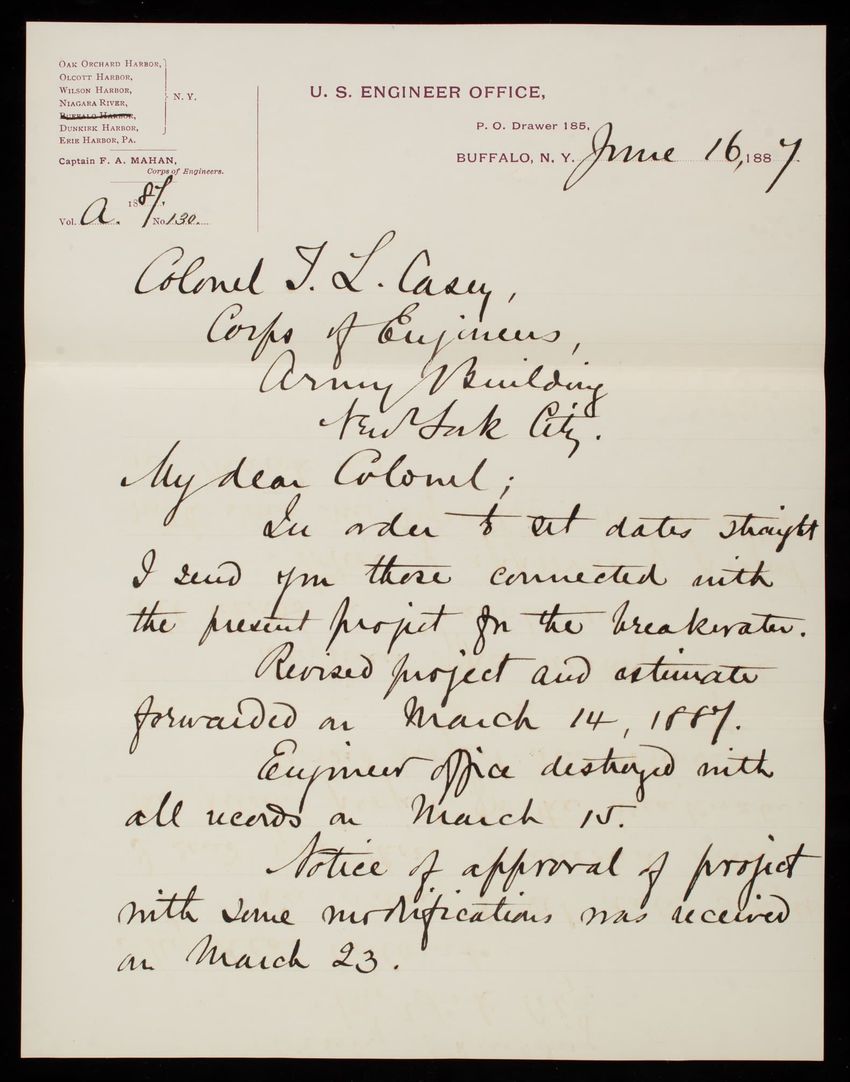 Oak Orchard Harbor,
Olcott Harbor,
Wilson Harbor,
Niagara River,
Buffalo Harbor,
Dunkirk Harbor,
Erie Harbor, Pa.
N. Y.
Captain F. A. MAHAN,
Corps of Engineers.
1887.
Vol. A. No. 130.
U. S. ENGINEER OFFICE,
P. O. Drawer 185,
BUFFALO, N. Y. June 16, 1887.
Colonel T. L. Casey,
Corps of Engineers,
Army Building
New York City.
My dear Colonel;
In order to set dates straight
I send you those connected with
the present project for the breakwater.
Revised project and estimate
forwarded on March 14, 1887.
Engineer office destroyed with
all records on March 15.
Notice of approval of project
with some modifications was received
on March 23.